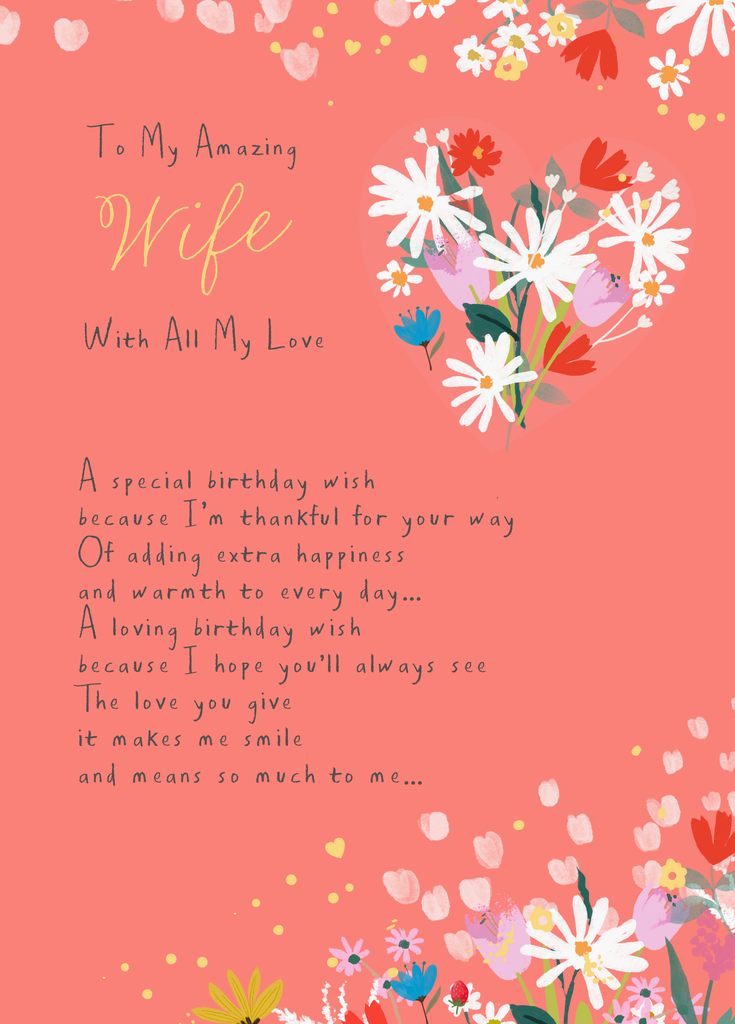 To My Amazing
Wife
With All My Love
A special birthday wish
because I'm thankful for your way
Of adding extra happiness
and warmth to every day...
A loving birthday wish
because I hope you'll always see
The love you give
it makes me smile
and means so much to me...